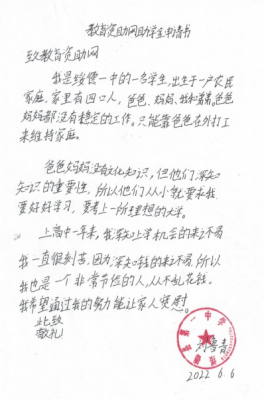 教育资助网助学生申请书
致教育资助网
我是绥德一中的一名学生,出生于一户农民
家庭,家里有四口人,爸爸、妈妈、我和
妈妈都没有稳定的工作。只能靠爸爸在外打工
来维持家庭。
爸爸妈妈没有文化知识,但他们深知
知识的重要性,所以他们从小就要求我
要好好学习,要考上一所理想的大学。
上高中一年来,我深知上学机会的来之不易
我一直很刻苦,因为深知钱的来之不易,所以
我也是一个非常节俭的人,从不乱花钱。
我希望通过我的努力能让家人宽慰
此致
敬礼
第一中学
2022 6.6